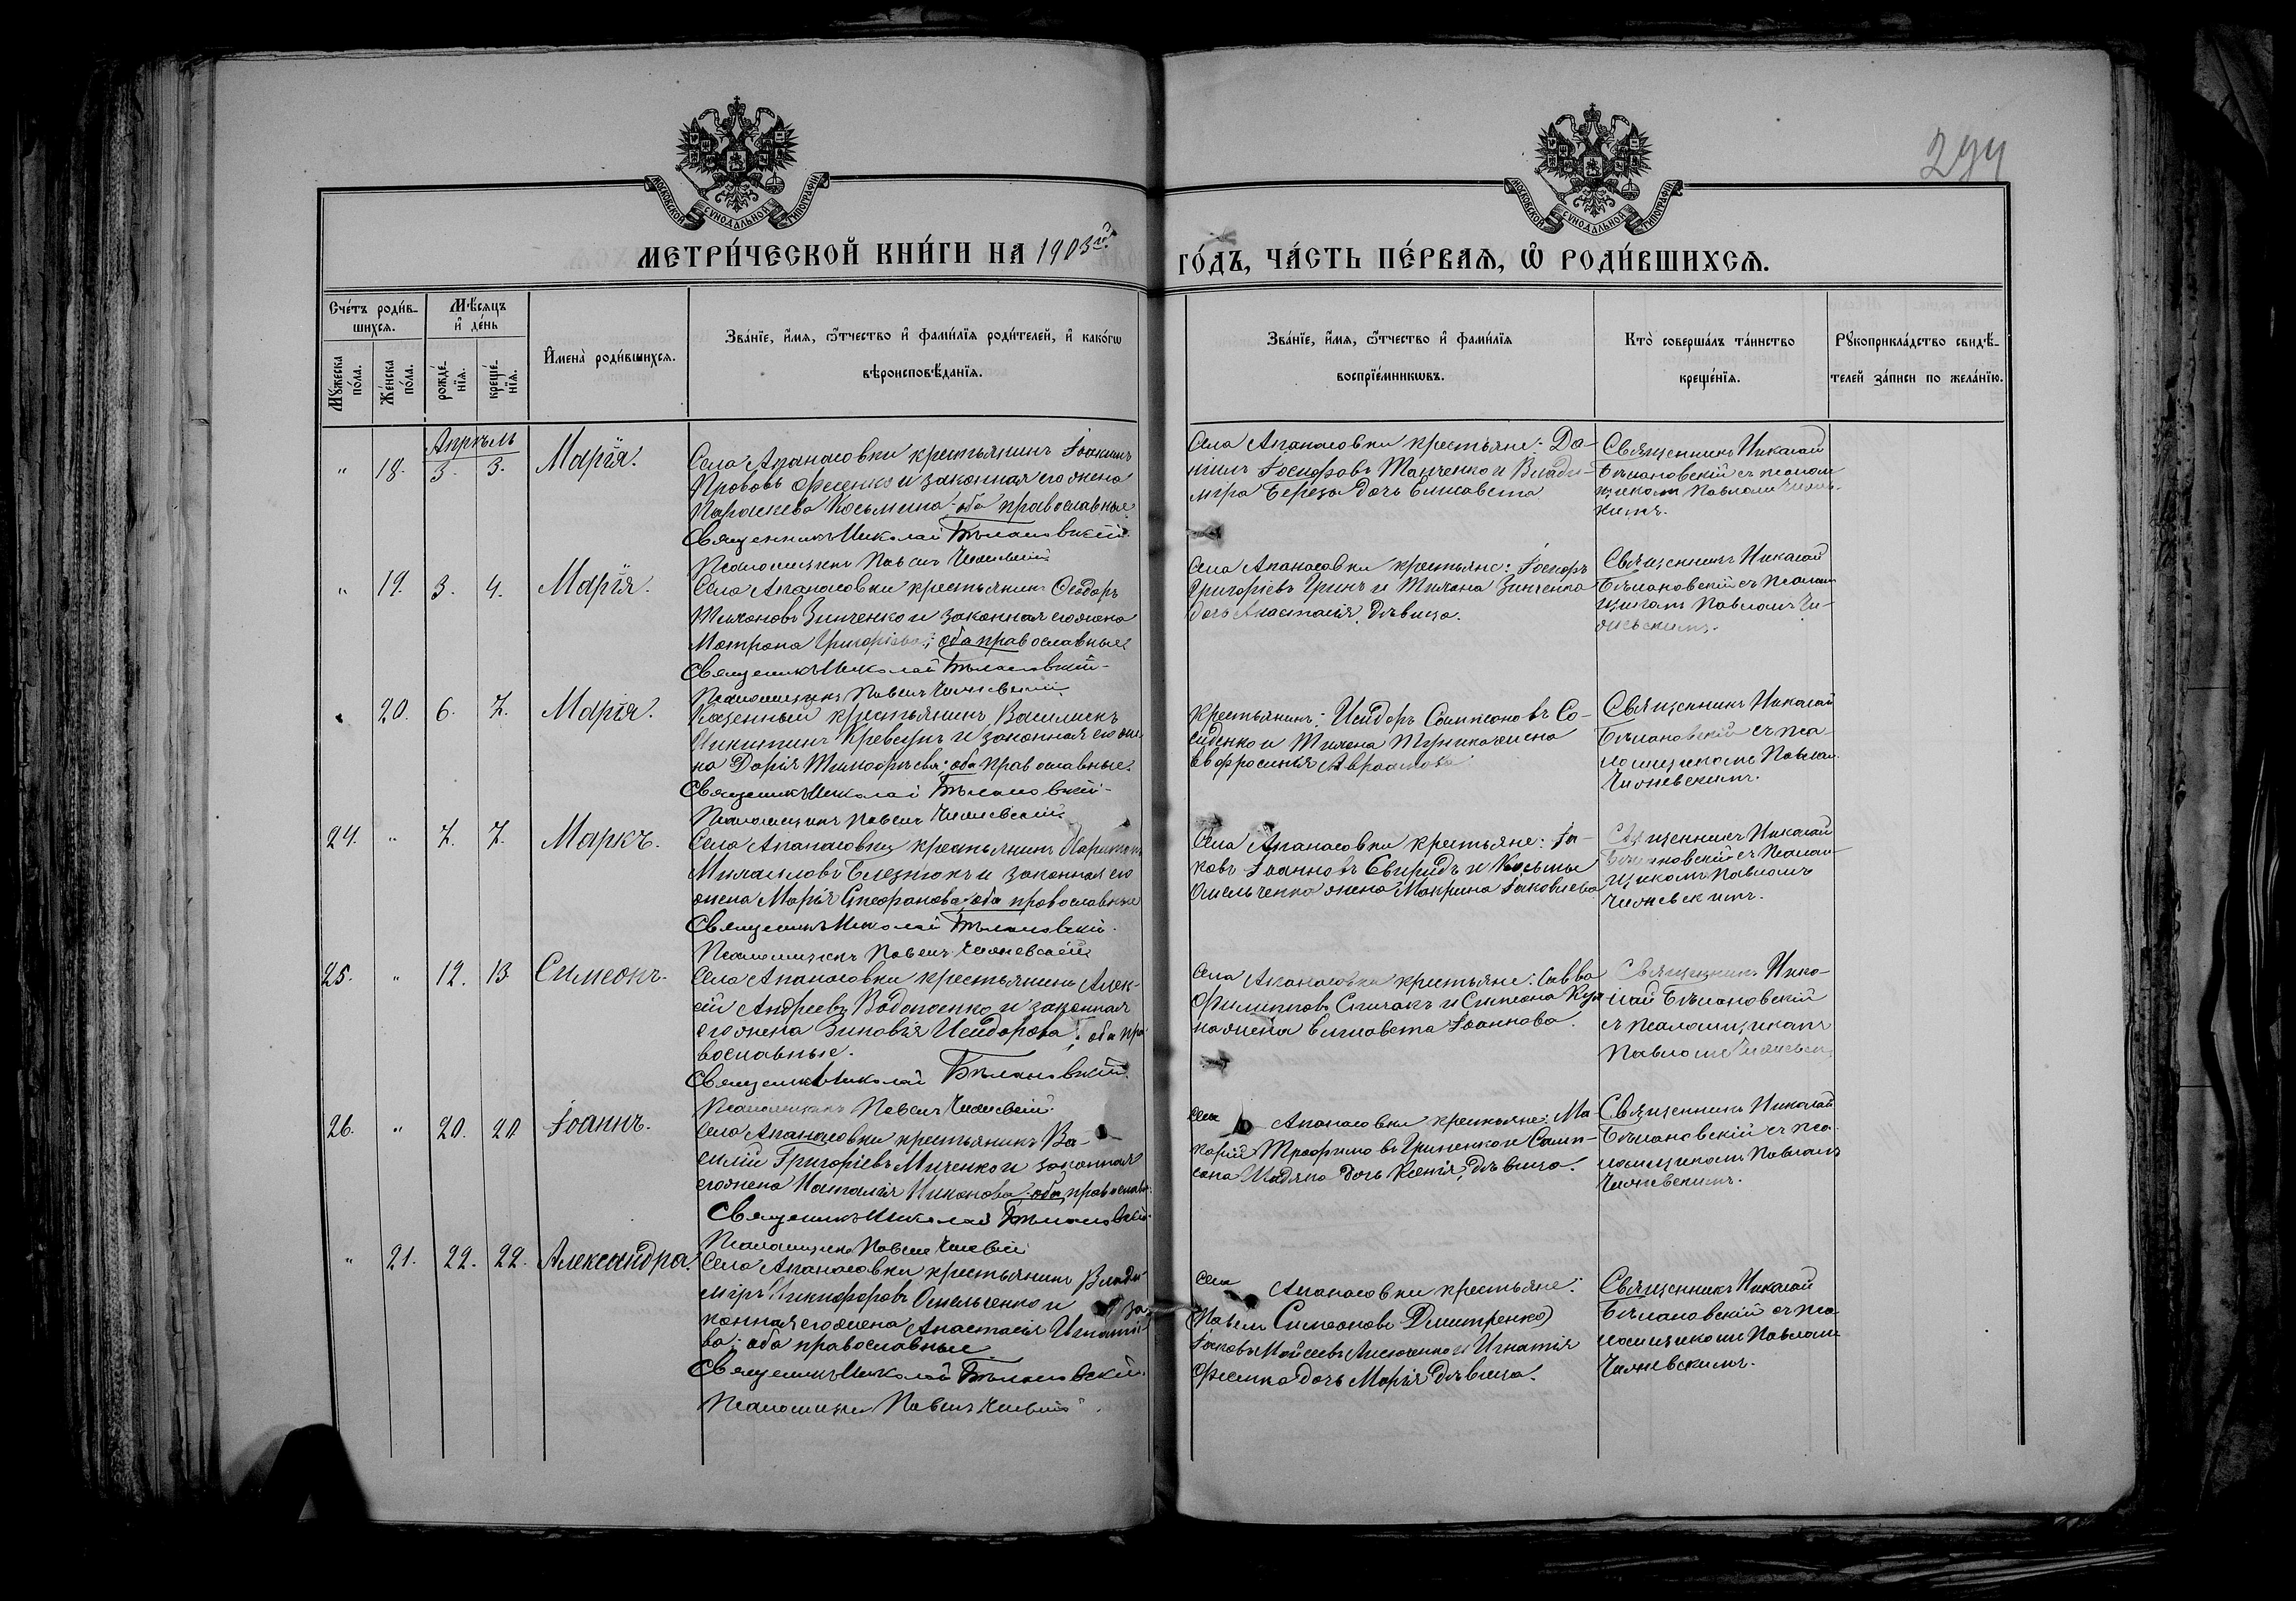 294
МОСКОВСКОЙ СУНОДАЛЬНОЙ ТИПОГРАФІИ
МОСКОВСКОЙ СУНОДАЛЬНОЙ ТИПОГРАФІИ
МЕТРИ́ЧЕСКОЙ КНИ́ГИ НА 1903й
ГО́ДЪ, ЧА́СТЬ ПЕ́РВАѦ, Ѽ РОДИ́ВШИХСѦ.
Сче́тъ роди́в-
шихсѧ.
Мꙋжеска по́ла.
Же́нска по́ла.
Мѣ́сѧцъ
и҆ де́нь
рожде́нїѧ.
креще́нїѧ.
И҆мена̀ роди́вшихсѧ.
Зва́нїе, и҆́мѧ, ѻ҆́тчество и҆ фами́лїѧ роди́телей, и҆ како́гѡ
вѣроисповѣ́данїѧ.
Зва́нїе, и҆́мѧ, ѻ҆́тчество и҆ фами́лїѧ
воспрїе́мникѡвъ.
Кто̀ соверша́лъ та́инство
креще́нїѧ.
Рꙋкоприкла́дство свидѣ́-
телей за́писи по жела́нїю.
Апрѣль
" 18. 3. 3. Марія.
Села Апанасовки крестьянинъ Іоакимъ
Прововъ Фесенко и законная его жена
Параскева Косьмина; оба православные.
Священникъ Николай Бѣлановскій
Псаломщикъ Павелъ Чижевскій
Села Апанасовки крестьяне: Да-
ніилъ Іосифовъ Танченко и Влади-
міра Береза дочь Елисавета
Священникъ Николай
Бѣлановскій съ псалом-
щикомъ Павломъ Чижев-
скимъ.
" 19. 3. 4. Марія.
Села Апанасовки крестьянинъ Ѳеодоръ
Тихоновъ Зинченко и законная его жена
Матрона Григорьева; оба православные
Священникъ Николай Бѣлановскій
Псаломщикъ Павелъ Чижевскій
Села Апанасовки крестьяне:
Григоріевъ Гринь и Тихона Зинченка
дочь Анастасія, дѣвица.
Священникъ Николай
Бѣлановскій съ псалом-
щикомъ Павломъ Чи-
жевскимъ.
" 20. 6. 7. Марія.
Казенный крестьянинъ Василискъ
Никитинъ Кревсунъ и законная его же-
на Дарія Тимофѣева; оба православные.
Священникъ Николай Бѣлановскій
Псаломщикъ Павелъ Чижевскій
Крестьянинъ: Исидоръ Сампсоновъ Со-
Евфросинія Авраамова
Священникъ Николай
Бѣлановскій съ пса-
ломщикомъ Павлом
Чижевскимъ.
24. " 7. 7. Маркъ.
Села Апанасовки крестьянинъ Харитонъ
Михаиловъ Близнюкъ и законная его
жена Марія Стефанова; оба православные
Священникъ Николай Бѣлановскій.
Псаломщикъ Павелъ Чижевскій
Села Апанасовки крестьяне: Іа-
ковъ Іоанновъ Свиридъ и Косьмы
Омельченка жена Макрина Іаковлева
Священникъ Николай
Бѣлановскій съ псалом-
щикомъ Павломъ
Чижевскимъ.
25. " 12. 13 Симеонъ.
Села Апанасовки крестьянинъ Алек-
сій Андреевъ Водопоенко и законная
его жена Зиновія Исидорова; оба пра-
вославные.
Священникъ Николай Бѣлановскій.
Псаломщикъ Павелъ Чижевскій.
Села Апанасовки крестьяне: Савва
Филипповъ Спичакъ и Симеона
жена Елисавета Іоаннова.
Священникъ Нико-
лай Бѣлановскій
съ псаломщикомъ
Павломъ Чижевск
26. " 20. 20 Іоаннъ.
Села Апанасовки крестьянинъ Ва-
силій Григоріевъ Миченко и законная
его жена Наталія Никонова; оба православ.
Священникъ Николай Бѣлановскій.
Псаломщикъ Павелъ Чижевскій
Села Апанасовки крестьяне: Ма-
карій Трофимовъ Гриненко и Самп-
сона дочь Ксенія, дѣвица.
Священникъ Николай
Бѣлановскій съ пса-
ломщикомъ Павломъ
Чижевскимъ.
" 21. 22. 22. Александра.
Села Апанасовки крестьянинъ Влади-
міръ Никифоровъ Омельченко и за-
конная его жена Анастасія Игнатіе-
ва; оба православные
Священникъ Николай Бѣлановскій
Псаломщикъ Павелъ Чижевскій.
Села Апанасовки крестьяне:
Павелъ Симеоновъ Дмитренко,
Іаковъ Моисеевъ и Игнатія
Фесенка дочь Марія дѣвица.
Священникъ Николай
Бѣлановскій съ пса-
ломщикомъ Павломъ
Чижевскимъ.